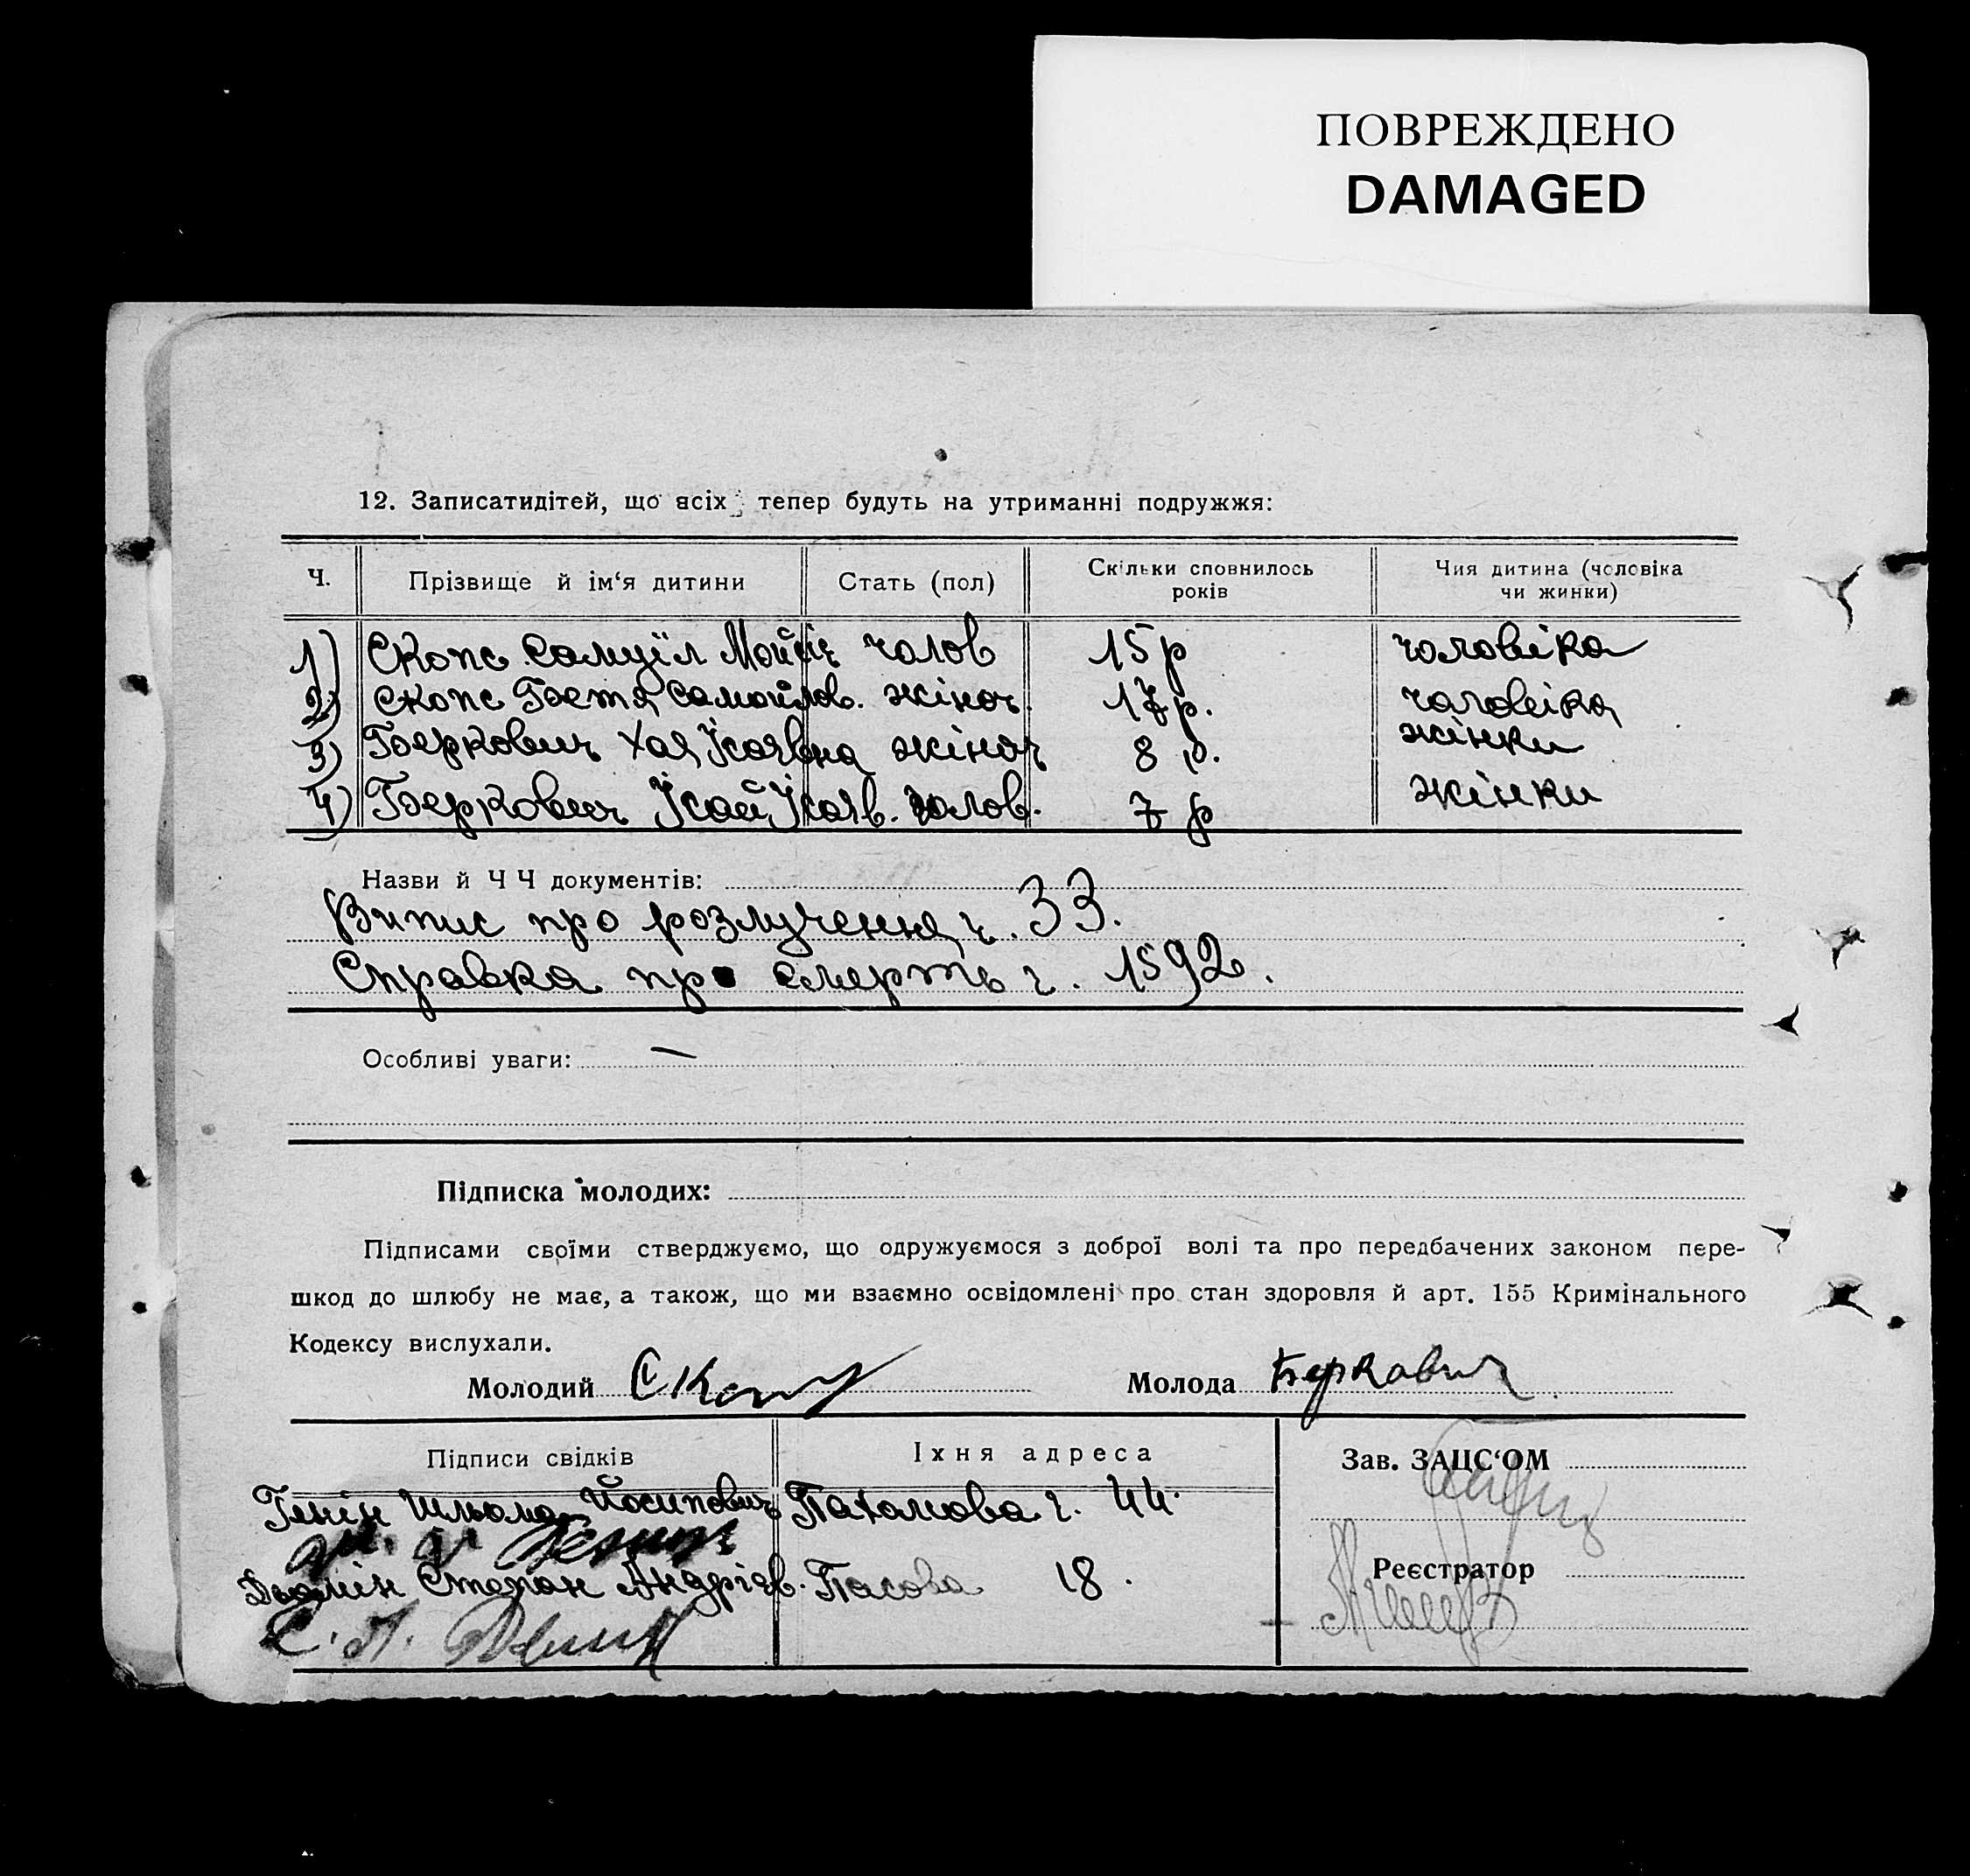 ПОВРЕЖДЕНО
DAMAGED
12. Записатидітей, що всіх тепер будуть на утриманні подружжя:
Ч. Прізвище й ім‘я дитини Стать (пол) Скільки сповнилось років Чия дитина (чоловіка чи жинки)
1) Скопс Самуїл Мойсіє чолов 15 р чоловіка
2) Скопс Бетя Самойлов. жіноч. 17 р. чоловіка
3) Беркович Хая Ісаявна жіноч 8 р. жінки
4) Беркович Ісай Ісаяв. чолов. 7 р жінки
Назви й Ч Ч документів:
Випис про розлучення ч. 33.
Справка про смерть ч. 1592.
Особливі уваги: —
Підписка молодих:
Підписами своїми стверджуємо, що одружуємося з доброї волі та про передбачених законом пере-
шкод до шлюбу не має, а також, що ми взаємно освідомлені про стан здоровля й арт. 155 Кримінального
Кодексу вислухали.
Молодий Молода Беркович
Підписи свідків Їхня адреса Зав. ЗАЦС‘ОМ
Генін Шльома Йосипович Пахомова ч. 44.
Реєстратор
Дьомін Степан Андріяв. Пасова 18.